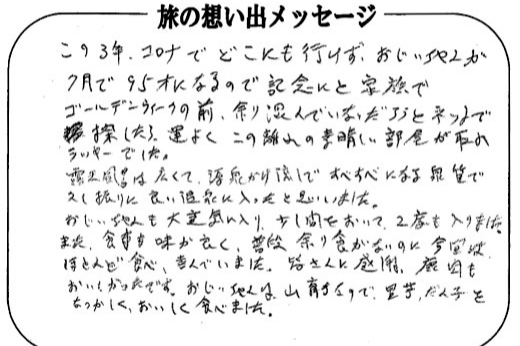 旅の想い出メッセージ
この3年、コロナでどこにも行けず、おじいちゃんが
7月で95才になるので記念にと家族で
ゴールデンウィークの前、余り混んでいないだろうとネットで
探したら、運よくこの離れの素晴しい部屋が取れ
ラッキーでした。
露天風呂は広くて、源泉かけ流しですべすべになる泉質で
久し振りに良い温泉に入ったと思いました。
おじいちゃんも大変気に入り、少し間をおいて、2度も入りました。
また、食事も味が良く、普段余り食がないのに今回は
ほとんど食べ、喜んでいました。皆さんに感謝。鹿肉も
おいしかったです。おじいちゃんは、山育ちなので、里芋、だん子を
なつかしく、おいしく食べました。